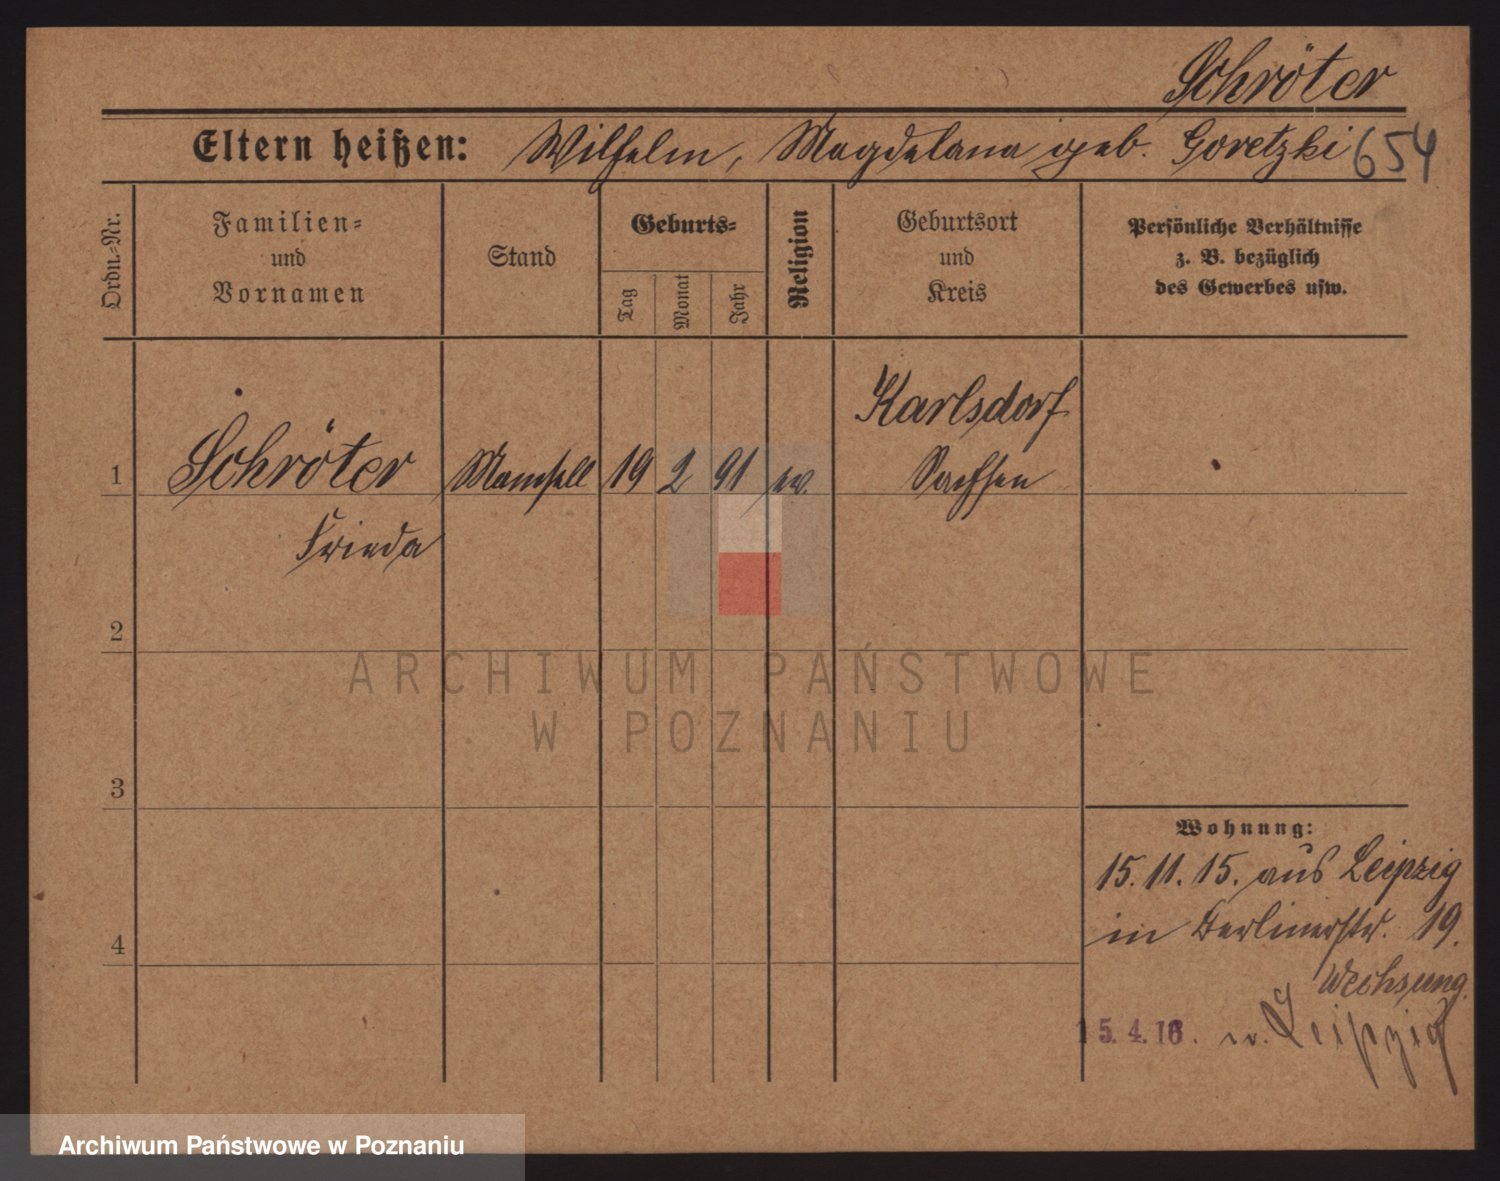 Schröter
Eltern heißen: Wilhelm, Magdalena geb. Goretzki 654
Ordn.-Nr.
Familien-
und
Vornamen
Stand
Geburts-
Tag
Monat
Jahr
Religion
Geburtsort
und
Kreis
Persönliche Verhältnisse
z. B. bezüglich
des Gewerbes usw.
Karlsdorf
1 Schröter Mamsell 19 2 91 ev. Sachsen
Frieda
2
ARCHIWUM PAŃSTWOWE
W POZNANIU
3
Wohnung:
15. 11. 15. aus Leipzig
4 in Berlinerstr. 19.
Wechsung.
15. 4. 16. n. Leipzig
Archiwum Państwowe w Poznaniu